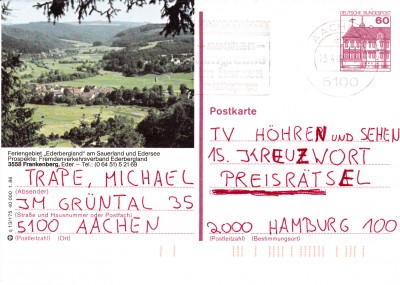 DEUTSCHE BUNDESPOST
60
AACHEN
5100
Feriengebiet „Ederbergland" am Sauerland und Edersee
Prospekte: Fremdenverkehrsverband Ederbergland
3558 Frankenberg, Eder – Tel.: (0 64 51) 5 21 69
TRAPE, MICHAEL
(Absender)
IM GRÜNTAL 35
(Straße und Hausnummer oder Postfach)
5100 AACHEN
(Postleitzahl) (Ort)
Postkarte
TV HÖHREN UND SEHEN
15. KREUZWORT
PREISRÄTSEL
2000 HAMBURG 100
(Postleitzahl) (Bestimmungsort)